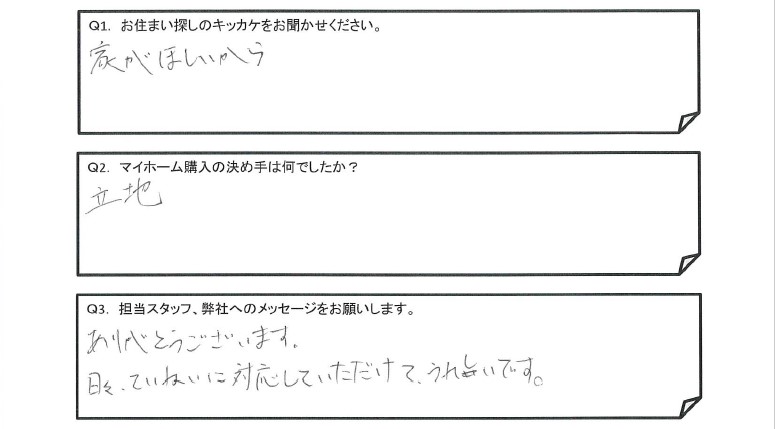 Q1. お住まい探しのキッカケをお聞かせください。
家がほしいから
Q2. マイホーム購入の決め手は何でしたか？
立地
Q3. 担当スタッフ、弊社へのメッセージをお願いします。
ありがとうございます。
日々、ていねいに対応していただけて、うれしいです。